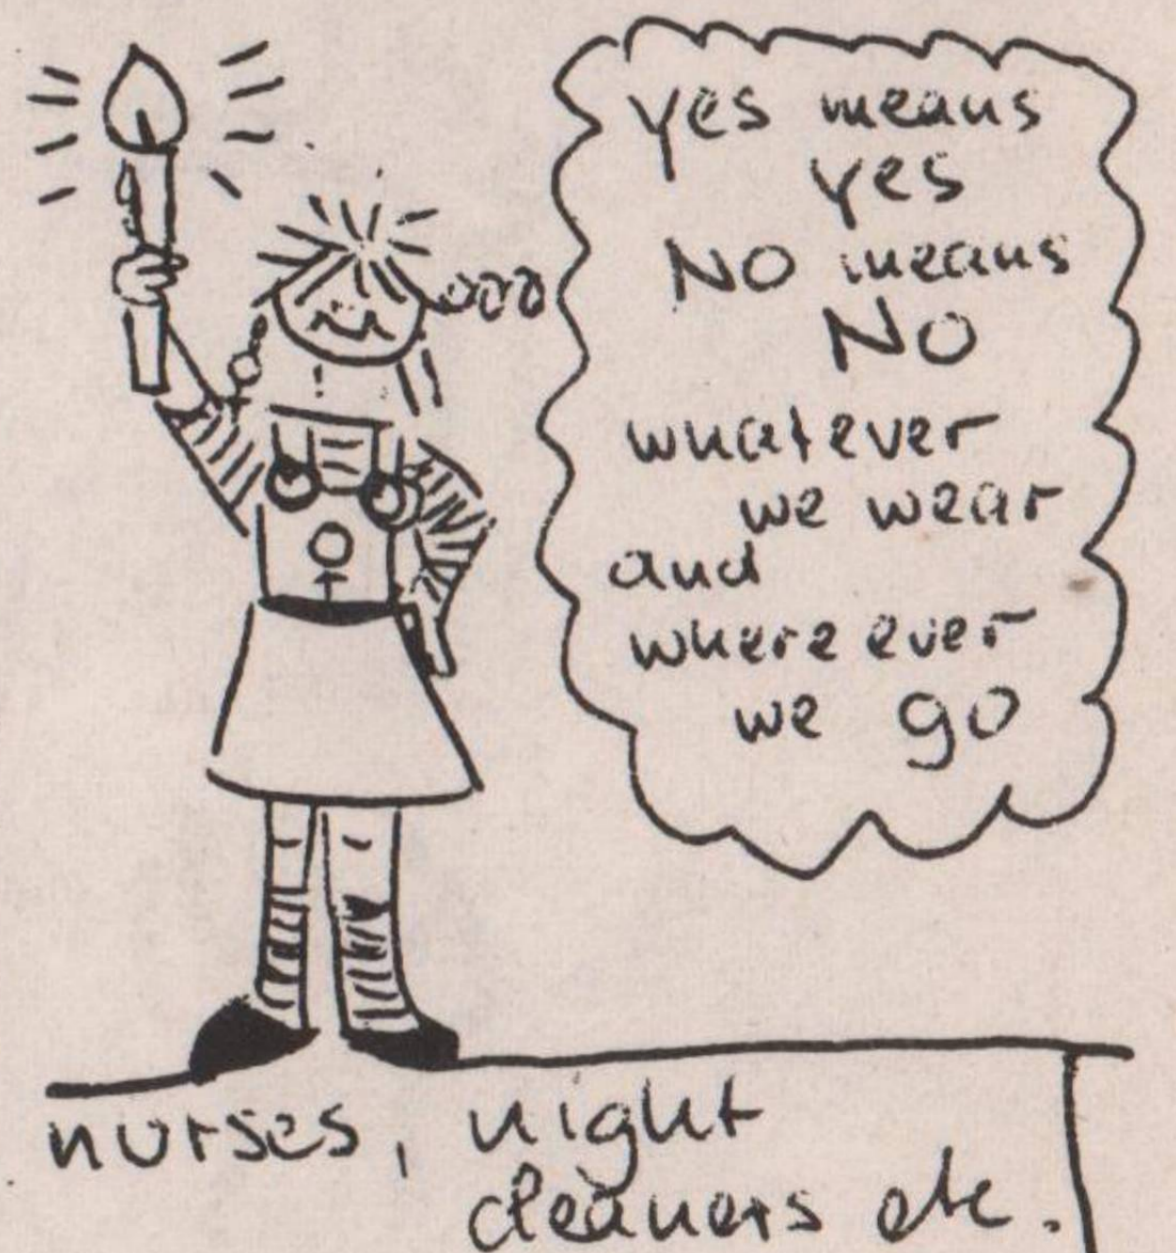 yes means
yes
NO means
NO
whatever
we wear
and
where ever
we go
nurses, night
cleaners etc.